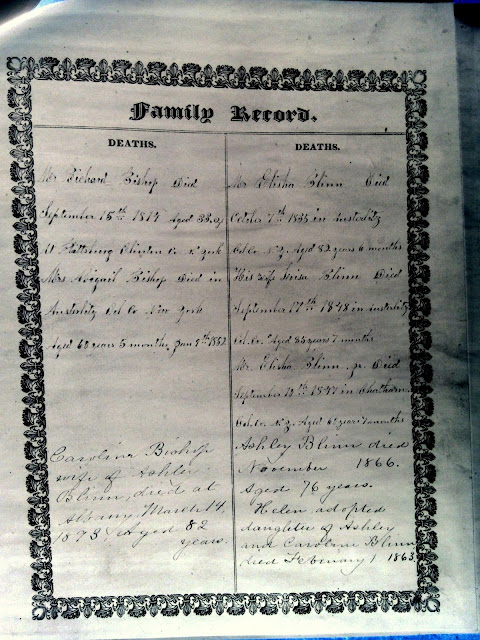 Family Record.
DEATHS.
Mr Richard Bishop Died
September 15th 1814 Aged 33.
At Plattsburg Clinton Co N. York
Mrs Abigail Bishop Died in
Austerlitz Col Co New York
Aged 60 years 5 months, Jan 9th 1852
Caroline Bishop
wife of Ashley
Blinn, died at
Albany March 14
1873 Aged 82
years.
DEATHS.
Mr Elisha Blinn Died
October 7th 1835 in Austerlitz
Col. Co. N.Y. Aged 82 years 6 months
His wife Blinn Died
September 17th 1848 in Austerlitz
Col. Co. Aged 84 years 7 months
Mr. Elisha Blinn. jr. Died
September 12th 1847 in Chatham.
Col. Co. N.Y. Aged years 7 months
Ashley Blinn died
November 1866.
Aged 76 years.
Helen adopted
daughter of Ashley
and Caroline Blinn
died February 1 1863